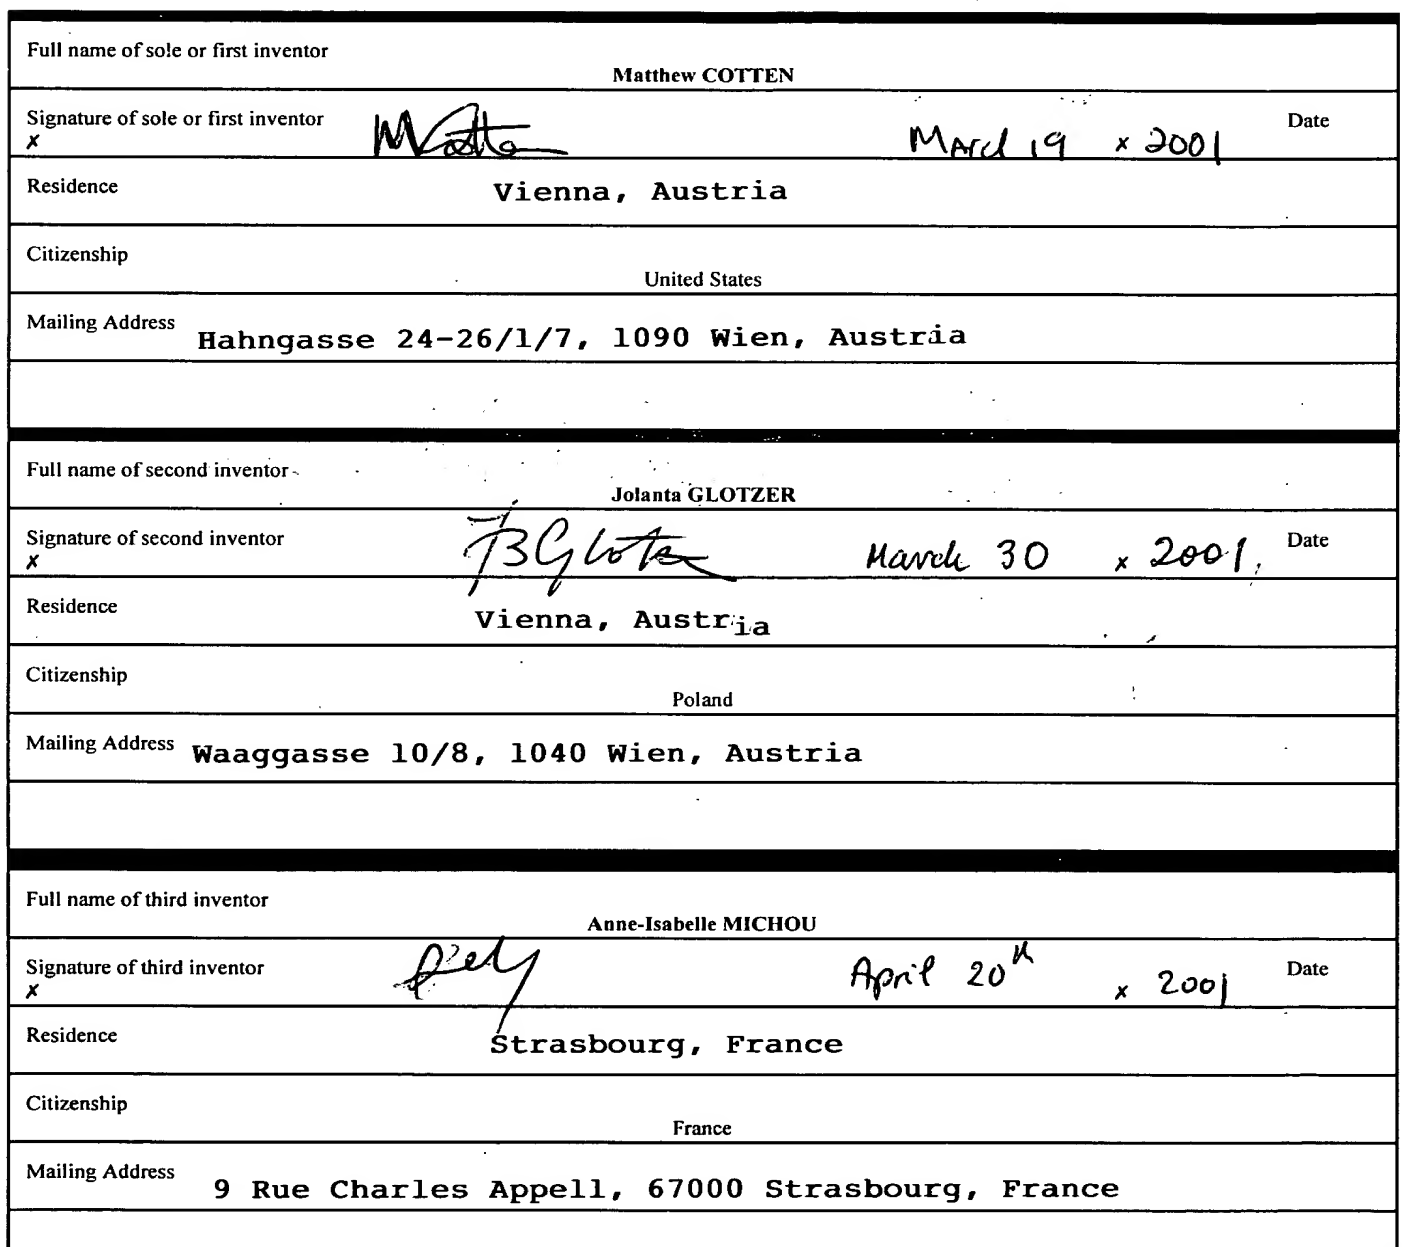 Full name of sole or first inventor
Matthew COTTEN
Signature of sole or first inventor
x MCotten March 19 x 2001 Date
Residence Vienna, Austria
Citizenship
United States
Mailing Address Hahngasse 24-26/1/7, 1090 Wien, Austria
Full name of second inventor
Jolanta GLOTZER
Signature of second inventor
x March 30 x 2001. Date
Residence
Vienna, Austria
Citizenship
Poland
Mailing Address Waaggasse 10/8, 1040 Wien, Austria
Full name of third inventor
Anne-Isabelle MICHOU
Signature of third inventor
x April 20th x 2001 Date
Residence
Strasbourg, France
Citizenship
France
Mailing Address
9 Rue Charles Appell, 67000 Strasbourg, France